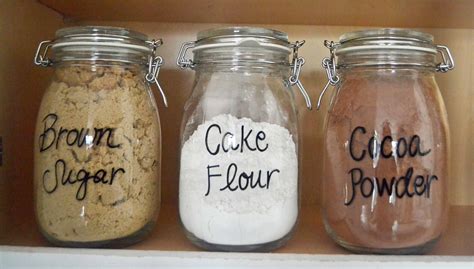 Brown
Sugar
Cake
Flour
Cocoa
Powder